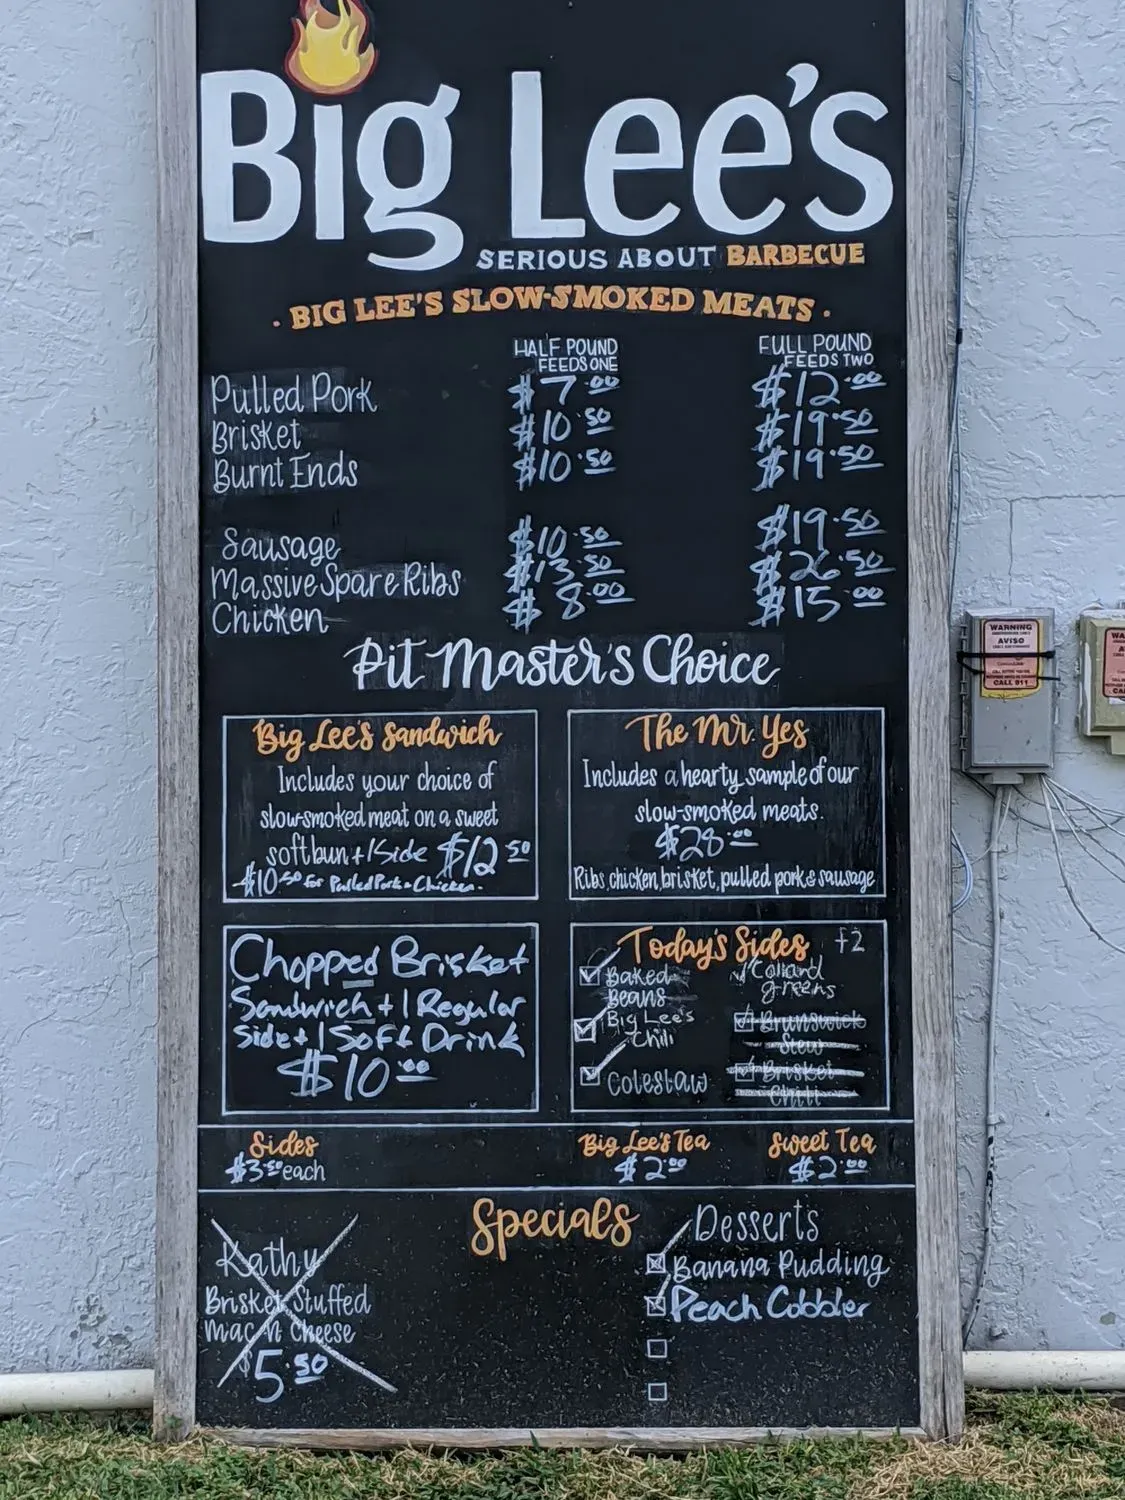 Big Lee's
SERIOUS ABOUT BARBECUE
· BIG LEE'S SLOW-SMOKED MEATS ·
HALF POUND
FEEDS ONE
FULL POUND
FEEDS TWO
Pulled Pork $7.00 $12.00
Brisket $10.50 $19.50
Burnt Ends $10.50 $19.50
Sausage $10.50 $19.50
Massive Spare Ribs $13.50 $26.50
Chicken $8.00 $15.00
Pit Master's Choice
Big Lee's Sandwich
Includes your choice of
slow-smoked meat on a sweet
soft bun + 1 Side $12 50
$10.50 for Pulled Pork & Chicken.
The Mr. Yes
Includes a hearty sample of our
slow-smoked meats.
$28.00
Ribs, chicken, brisket, pulled pork & sausage
Chopped Brisket
Sandwich + 1 Regular
Side + 1 Soft Drink
$10.00
Today's Sides
Baked
Beans
Big Lee's
Chili
Coleslaw
Collard
greens
Brunswick
Stew
Brisket
Chili
Sides
$3.50 each
Big Lee's Tea
$2.00
Sweet Tea
$2.00
Specials
Kathy
Brisket Stuffed
Mac N Cheese
$5.50
Desserts
Banana Pudding
Peach Cobbler
WARNING
AVISO
CALL 811